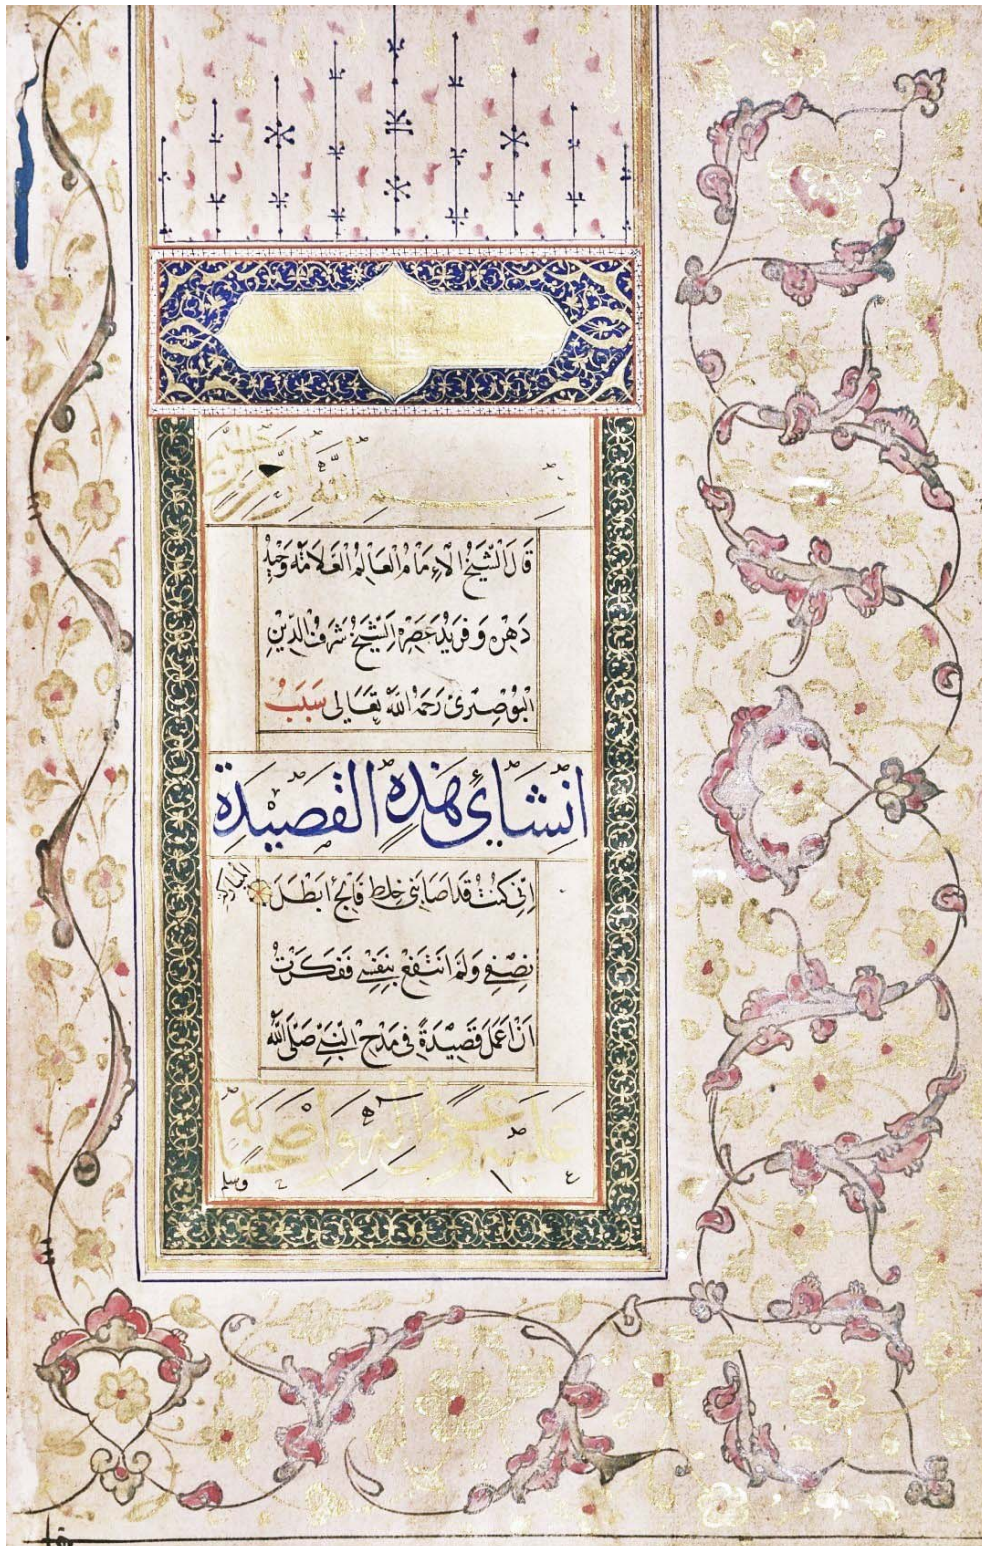 بسم الله الرحمن الرحيم
قَالَ الشَّيْخُ الْاِمَامُ الْعَالِمُ الْعَلَامَّه وَحِيدُ
دَهْرِه وَفَرِيْدُ عَصْرِه اَلشَّيْخُ شَرَفُ الدِّيْنِ
الْبُوْصِيْرِىْ رَحِمَهُ اللّٰه تَعَالى سَبَبُ
اِنْشَائِ هٰذِهِ الْقَصِيْدَةِ
المباركه
اِنِّى كُنْتُ قَدْ اَصَابَنِى خَلِط فَالِج اَبْطَلَ
نِصْفِى وَلَمْ اَنْتَفِعْ بِنَفْسِى فَفَكَرْتُ
اَنْ اَعْمَلَ قَصِيْدَةً فِى مَدْحِ النَّبِىِّ صَلَّى اللّٰه
عليه وعلى اله واصحابه
وسلم